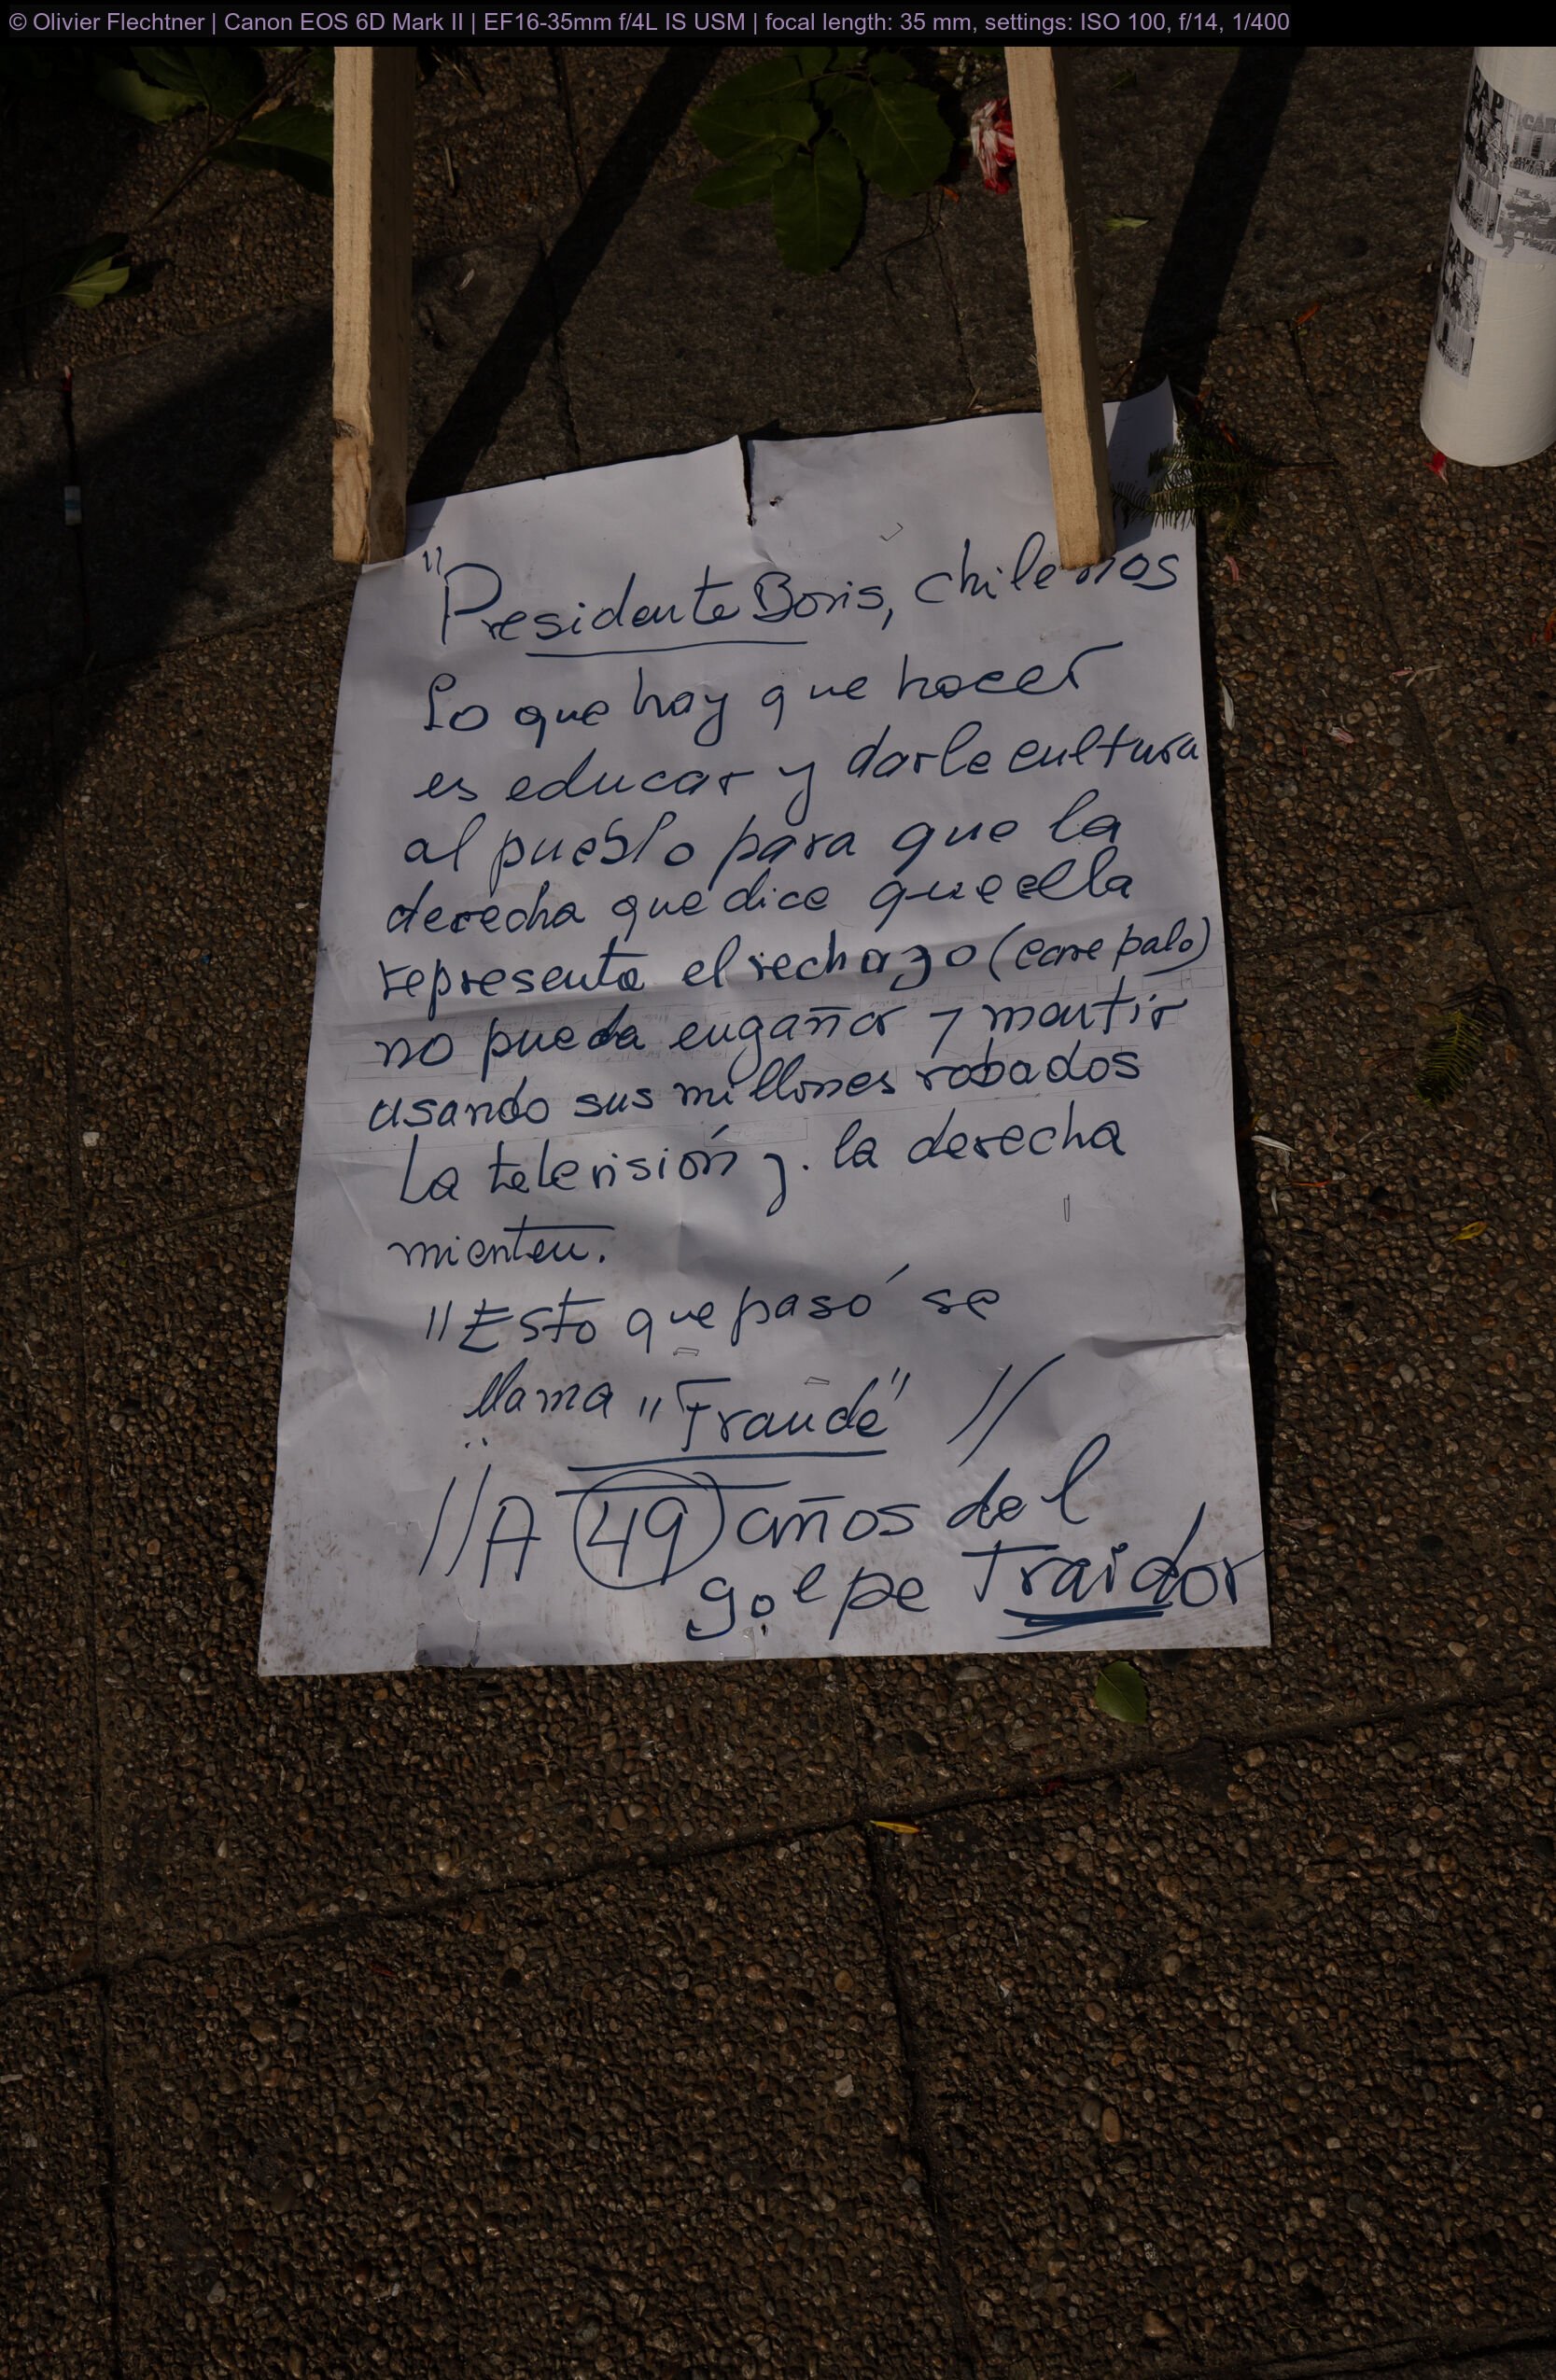 © Olivier Flechtner | Canon EOS 6D Mark II | EF16-35mm f/4L IS USM | focal length: 35 mm, settings: ISO 100, f/14, 1/400
"Presidente Boris, chilenos
Lo que hay que hacer
es educar y darle cultura
al pueblo para que la
derecha que dice que ella
representa el rechazo (care palo)
no pueda engañar y mentir
usando sus millones robados
La televisión y. la derecha
mienten.
"Esto que pasó se
llama "Fraude" //
//A 49 años del
golpe Traidor